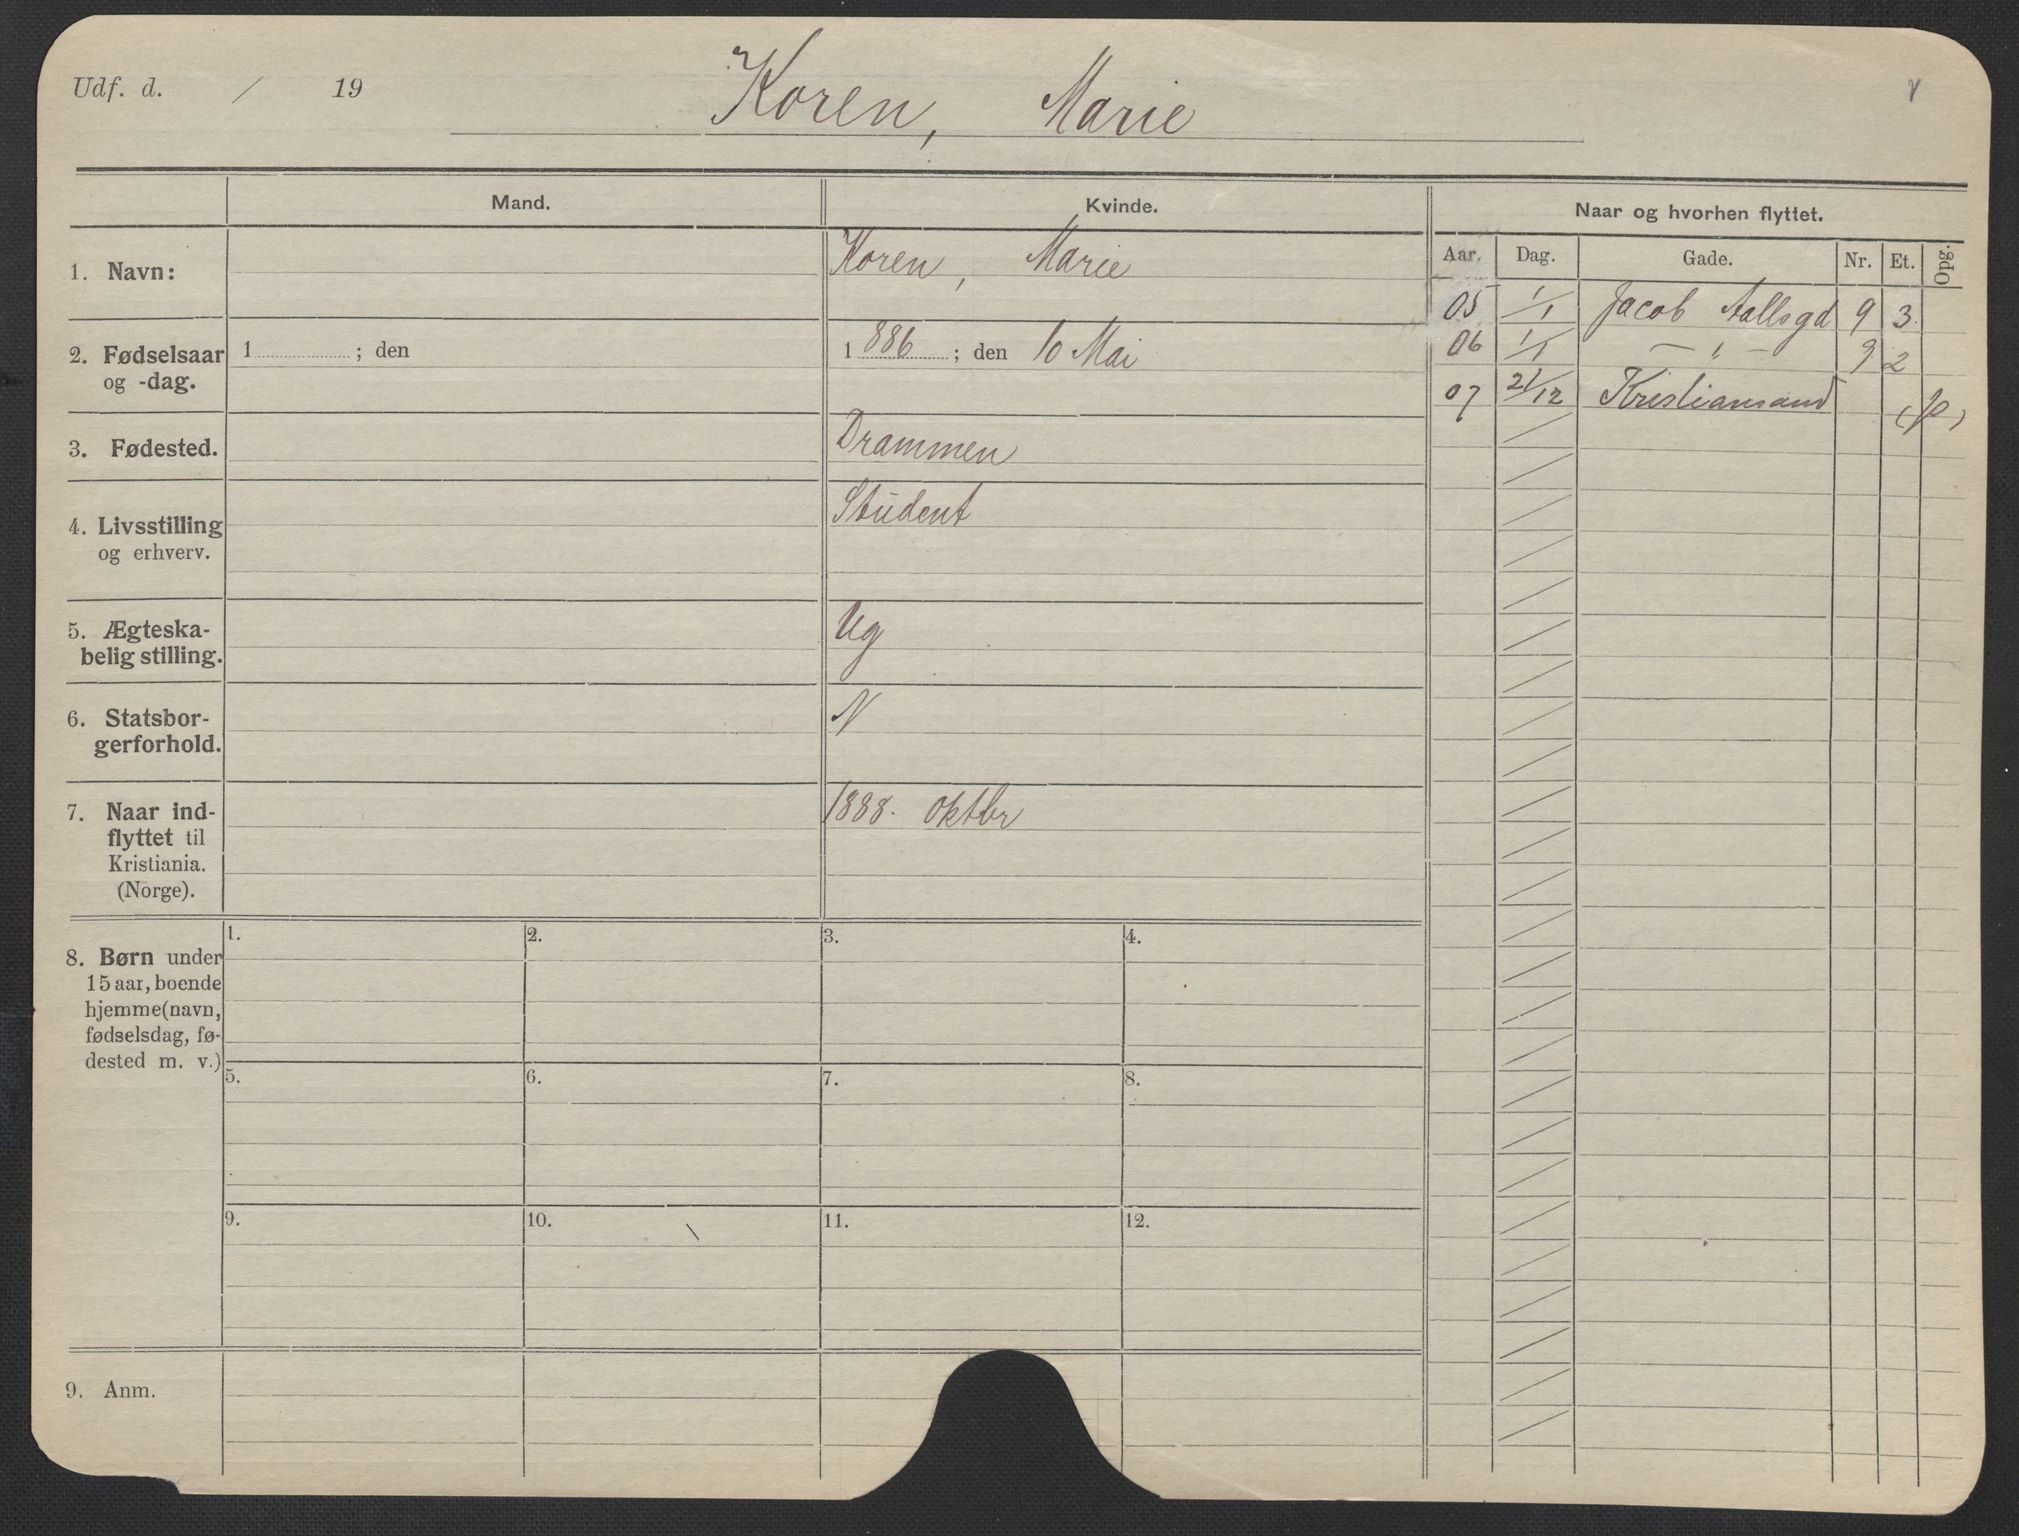 Udf. d. / 19
Koren, Marie
Mand.
Kvinde.
Naar og hvorhen flyttet.
Aar. Dag. Gade. Nr. Et. Opg.
1. Navn:
Koren, Marie
2. Fødselsaar
og -dag.
1 ; den
1 886 ; den 10 Mai
3. Fødested.
Drammen
4. Livsstilling
og erhverv.
Student
5. Ægteska-
belig stilling.
Ug
6. Statsbor-
gerforhold.
N
7. Naar ind-
flyttet til
Kristiania.
(Norge).
1888. oktbr
05 1/1 Jacob Aallsgd 9 3
06 1/1 — " — 9 2
07 21/12 Kristiansand (p)
8. Børn under
15 aar, boende
hjemme (navn,
fødselsdag, fø-
dested m. v.)
1. 2. 3. 4.
5. 6. 7. 8.
9. 10. 11. 12.
9. Anm.